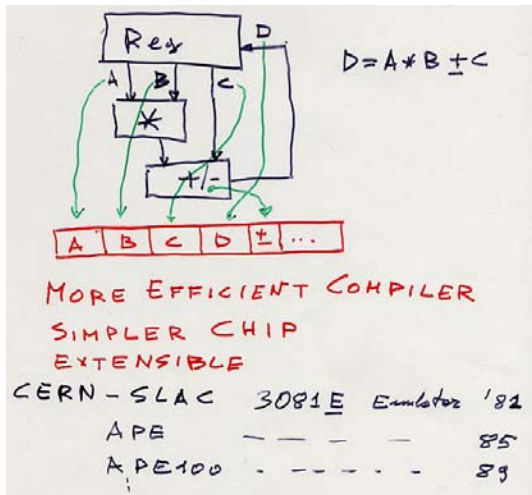 Reg
D
A B C
D = A * B ± C
*
+/-
A B C D ± ...
MORE EFFICIENT COMPILER
SIMPLER CHIP
EXTENSIBLE
CERN - SLAC 3081E Emulator '82
APE — — — — 85
APE100 - — — — - 89